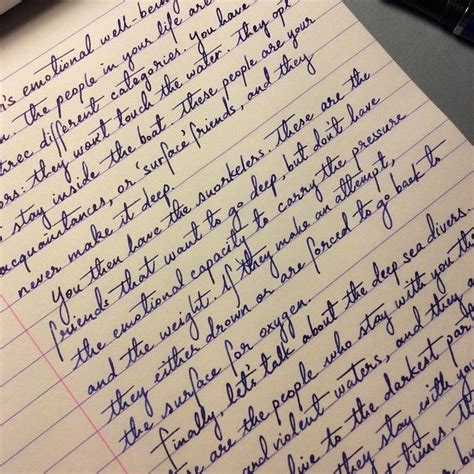 's emotional well-being
The people in your life are
different categories. You have
ors: they won't touch the water. They opt
stay inside the boat. These people are your
acquaintances, or 'surface' friends, and they
never make it deep.
You then have the snorkelers. These are the
friends that want to go deep, but don't have
the emotional capacity to carry the pressure
and the weight. If they make an attempt,
they either drown or are forced to go back to
the surface for oxygen.
Finally, let's talk about the deep sea divers.
are the people who stay with you th
and violent waters, and they
ive to the darkest par
they stay with yo
times. Th